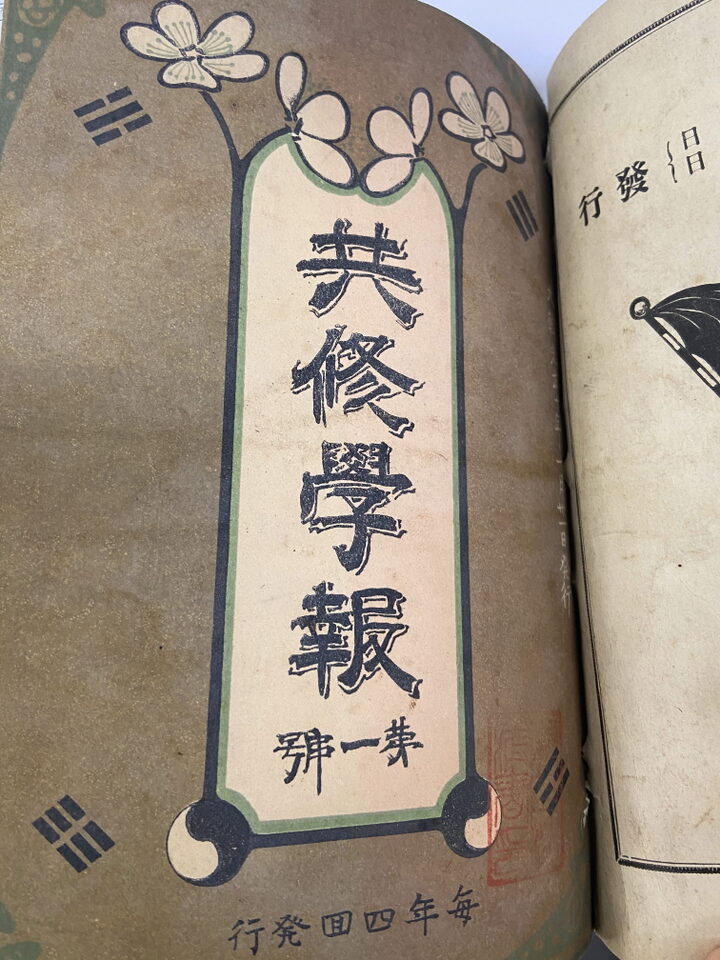 共修學報
苐一號
每年四回発行
日
日
發行